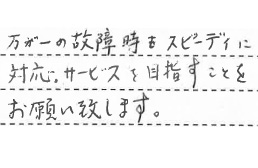 万が一の故障時もスピーディに
対応。サービスを目指すことを
お願い致します。